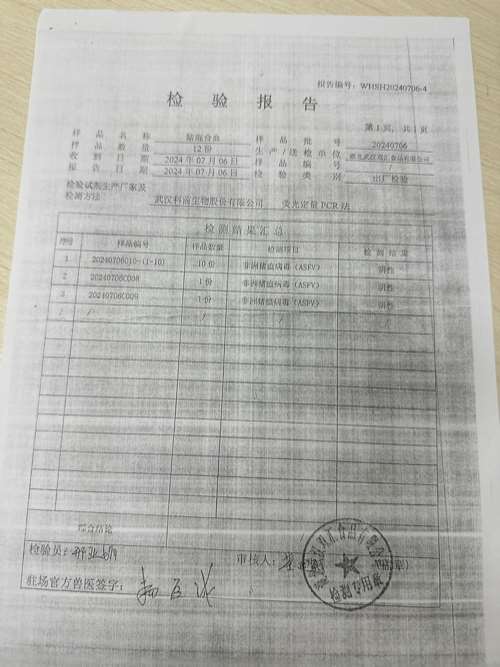 报告编号：WHSH20240706-4
检 验 报 告
第 1 页，共 1 页
样品名称 猪瘟合血 样品批号 20240706
样品数量 12 份 生产/送检单位 武汉双汇食品有限公司
收到日期 2024 年 07 月 06 日 样品编号
报告日期 2024 年 07 月 06 日 检验类别 出厂检验
检验试剂生产厂家及
检测方法 武汉科前生物股份有限公司 荧光定量 PCR 法
检测结果汇总
序号 样品编号 样品数量 检测项目 检测结果
1 20240706C10-(1-10) 10 份 非洲猪瘟病毒（ASFV） 阴性
2 20240706C008 1 份 非洲猪瘟病毒（ASFV） 阴性
3 20240706C009 1 份 非洲猪瘟病毒（ASFV） 阴性
/ / / / /
综合结论
检验员：
审核人：
驻场官方兽医签字：